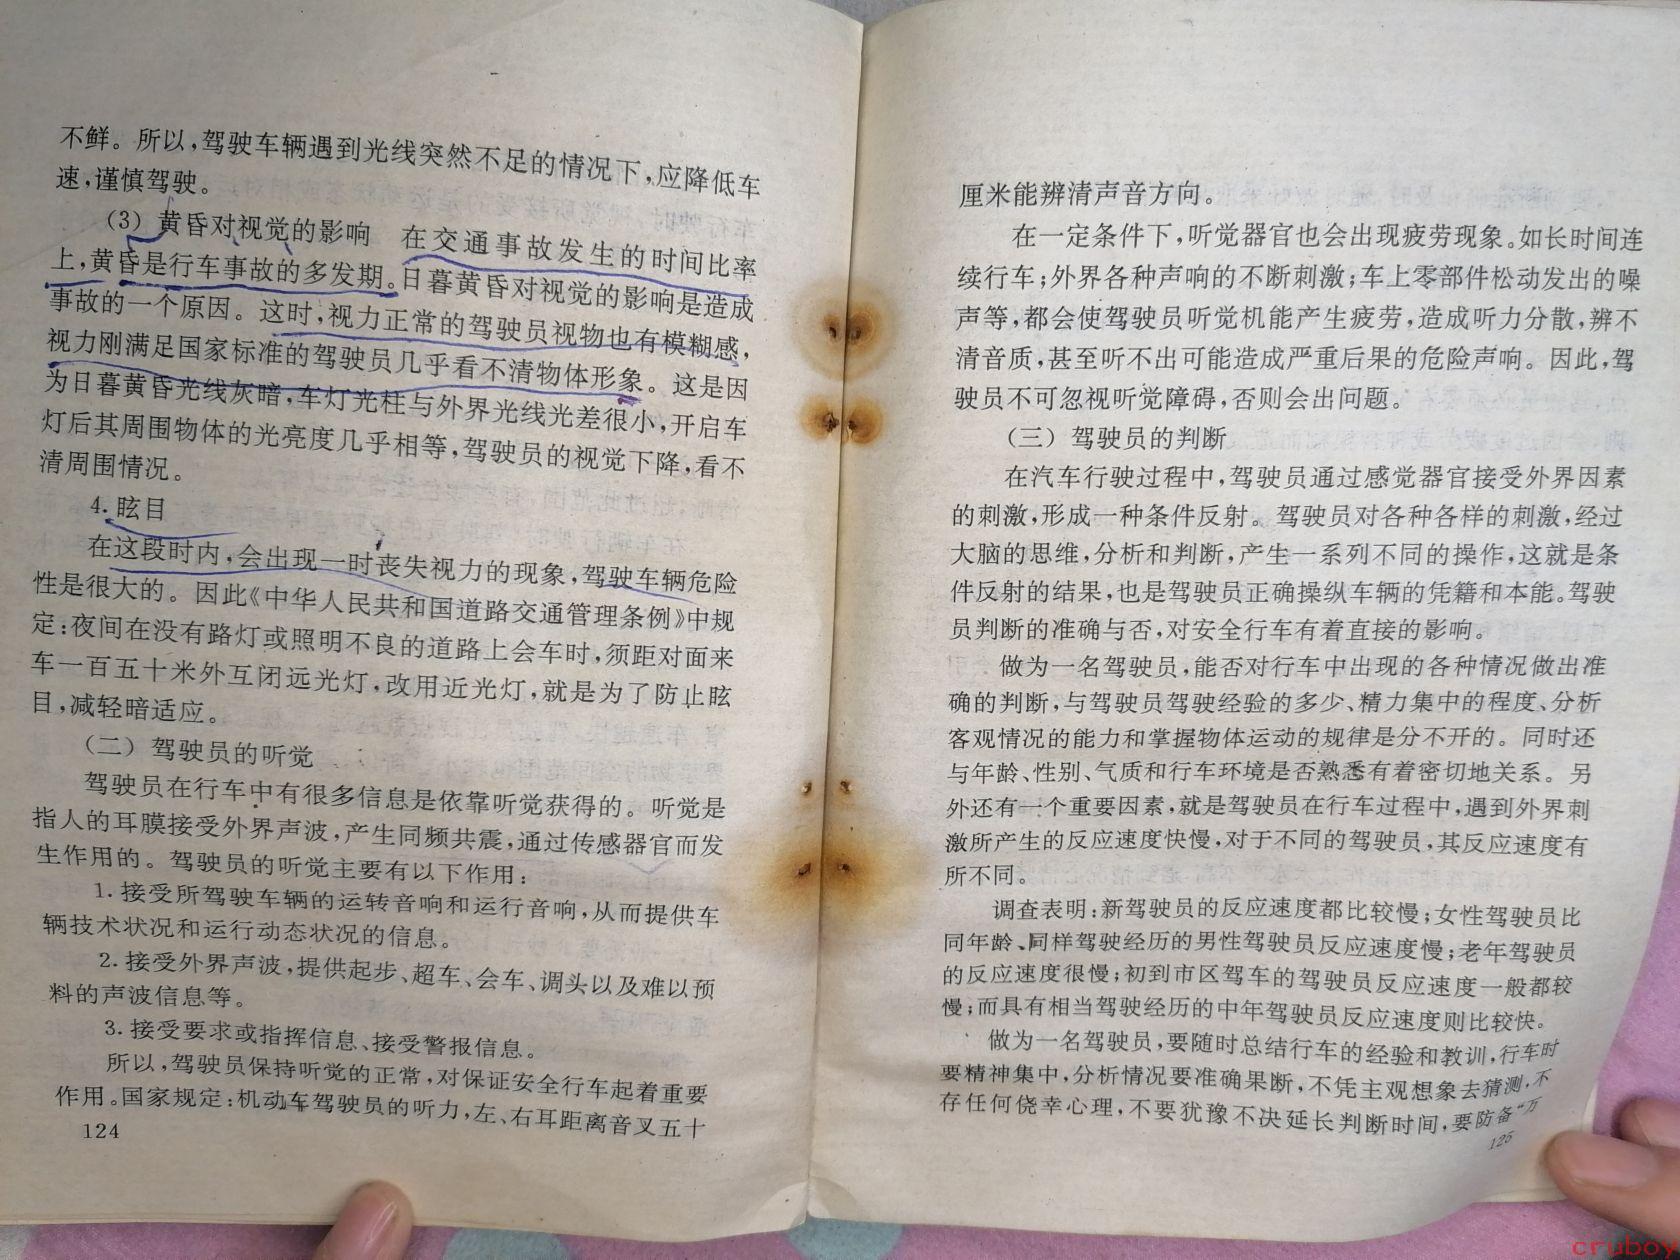 不鲜。所以,驾驶车辆遇到光线突然不足的情况下,应降低车
速,谨慎驾驶。
(3) 黄昏对视觉的影响　在交通事故发生的时间比率
上,黄昏是行车事故的多发期。日暮黄昏对视觉的影响是造成
事故的一个原因。这时,视力正常的驾驶员视物也有模糊感,
视力刚满足国家标准的驾驶员几乎看不清物体形象。这是因
为日暮黄昏光线灰暗,车灯光柱与外界光线光差很小,开启车
灯后其周围物体的光亮度几乎相等,驾驶员的视觉下降,看不
清周围情况。
4. 眩目
在这段时内,会出现一时丧失视力的现象,驾驶车辆危险
性是很大的。因此《中华人民共和国道路交通管理条例》中规
定:夜间在没有路灯或照明不良的道路上会车时,须距对面来
车一百五十米外互闭远光灯,改用近光灯,就是为了防止眩
目,减轻暗适应。
(二) 驾驶员的听觉
驾驶员在行车中有很多信息是依靠听觉获得的。听觉是
指人的耳膜接受外界声波,产生同频共震,通过传感器官而发
生作用的。驾驶员的听觉主要有以下作用:
1. 接受所驾驶车辆的运转音响和运行音响,从而提供车
辆技术状况和运行动态状况的信息。
2. 接受外界声波,提供起步、超车、会车、调头以及难以预
料的声波信息等。
3. 接受要求或指挥信息、接受警报信息。
所以,驾驶员保持听觉的正常,对保证安全行车起着重要
作用。国家规定:机动车驾驶员的听力,左、右耳距离音叉五十
124
厘米能辨清声音方向。
在一定条件下,听觉器官也会出现疲劳现象。如长时间连
续行车;外界各种声响的不断刺激;车上零部件松动发出的噪
声等,都会使驾驶员听觉机能产生疲劳,造成听力分散,辨不
清音质,甚至听不出可能造成严重后果的危险声响。因此,驾
驶员不可忽视听觉障碍,否则会出问题。
(三) 驾驶员的判断
在汽车行驶过程中,驾驶员通过感觉器官接受外界因素
的刺激,形成一种条件反射。驾驶员对各种各样的刺激,经过
大脑的思维,分析和判断,产生一系列不同的操作,这就是条
件反射的结果,也是驾驶员正确操纵车辆的凭籍和本能。驾驶
员判断的准确与否,对安全行车有着直接的影响。
做为一名驾驶员,能否对行车中出现的各种情况做出准
确的判断,与驾驶员驾驶经验的多少、精力集中的程度、分析
客观情况的能力和掌握物体运动的规律是分不开的。同时还
与年龄、性别、气质和行车环境是否熟悉有着密切地关系。另
外还有一个重要因素,就是驾驶员在行车过程中,遇到外界刺
激所产生的反应速度快慢,对于不同的驾驶员,其反应速度有
所不同。
调查表明:新驾驶员的反应速度都比较慢;女性驾驶员比
同年龄、同样驾驶经历的男性驾驶员反应速度慢;老年驾驶员
的反应速度很慢;初到市区驾车的驾驶员反应速度一般都较
慢;而具有相当驾驶经历的中年驾驶员反应速度则比较快。
做为一名驾驶员,要随时总结行车的经验和教训,行车时
要精神集中,分析情况要准确果断,不凭主观想象去猜测,不
存任何侥幸心理,不要犹豫不决延长判断时间,要防备“万
125
cruboy